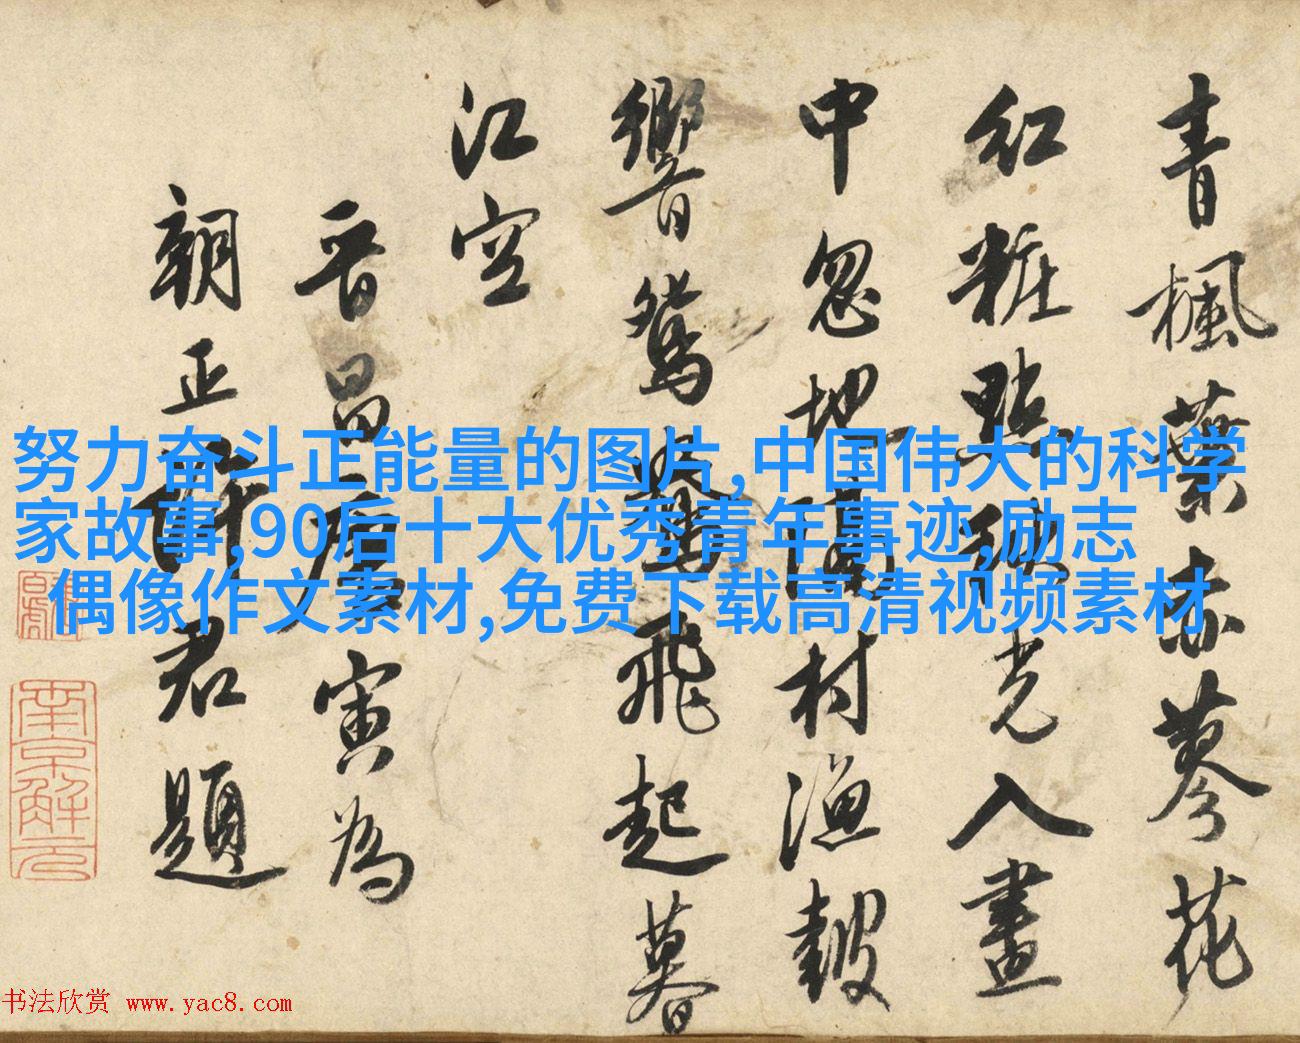 青楓葉赤蓼花
紅粧點秋光入畫
中忽地隔村漁鼓
響鴛鴦飛起暮
江空
晉昌唐寅為
朝正君題
南京解元
努力奋斗正能量的图片,中国伟大的科学
家故事,90后十大优秀青年事迹,励志
偶像作文素材,免费下载高清视频素材
书法欣赏 www.yac8.com